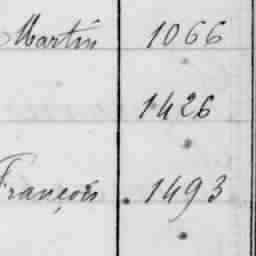 Martin 1066
1426
François 1493